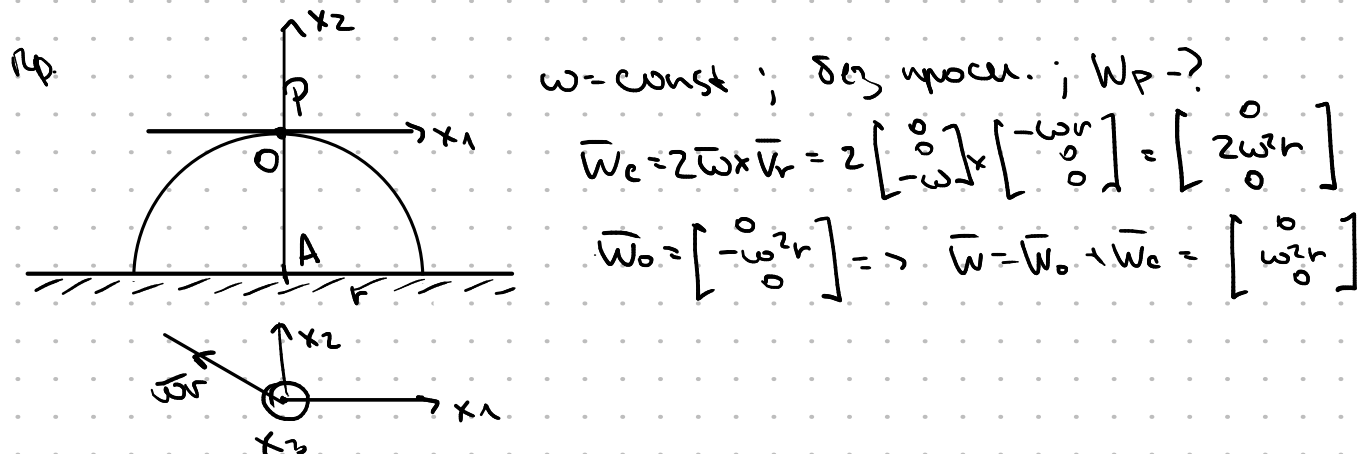 Пр.
x2
P
O
x1
A
r
ω̄r
x2
x1
x3
ω = const ; без проск. ; Wp - ?
W̄c = 2ω̄ × V̄r = 2 [0 0 -ω] × [-ωr 0 0] = [0 2ω²r 0]
W̄o = [0 -ω²r 0] => W̄ = W̄o + W̄c = [0 ω²r 0]